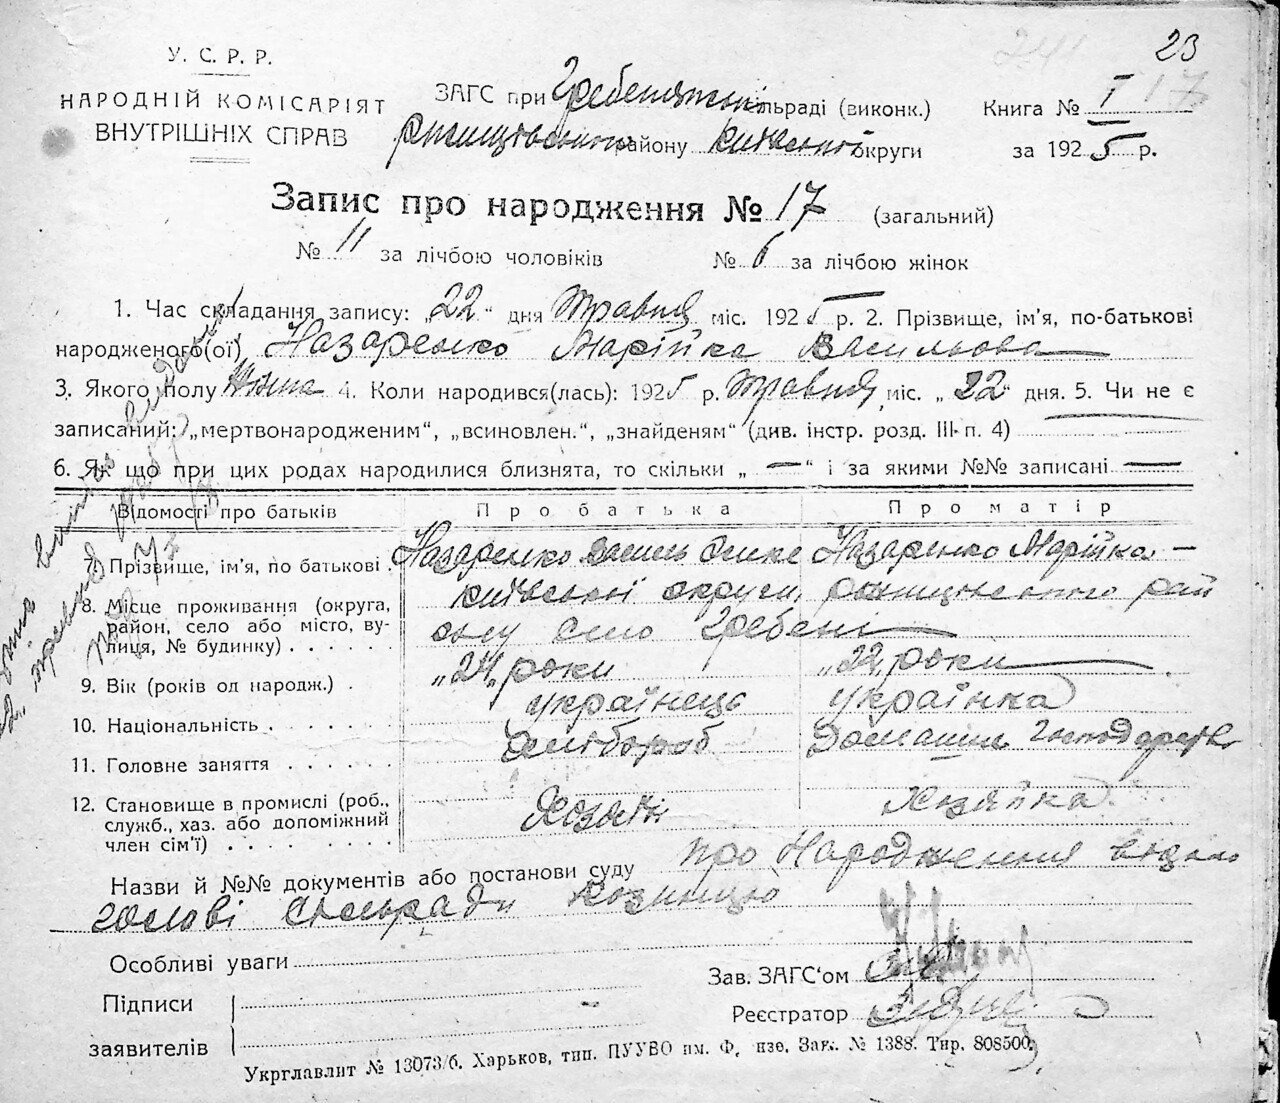 23
241
У. С. Р. Р.
НАРОДНІЙ КОМІСАРІЯТ
ВНУТРІШНІХ СПРАВ
ЗАГС при Гребенській сільраді (виконк.)
району Київської округи
Книга № I 17
за 1925 р.
Запис про народження № 17 (загальний)
№ 11 за лічбою чоловіків № 6 за лічбою жінок
1. Час складання запису: „22“ дня Травня міс. 1925 р. 2. Прізвище, ім’я, по-батькові
народженого(ої) Назаренко Марійка Васильова
3. Якого полу Жіноча 4. Коли народився(лась): 1925 р. Травня міс. „22“ дня. 5. Чи не є
записаний: „мертвонародженим“, „всиновлен.“, „знайденям“ (див. інстр. розд. III п. 4) —
6. Як що при цих родах народилися близнята, то скільки „ — “ і за якими №№ записані —
Відомості про батьків Про батька Про матір
7. Прізвище, ім’я, по батькові . Назаренко Василь Назаренко Марійка —
8. Місце проживання (округа, Київської округи,
район, село або місто, ву- село Гребені
лиця, № будинку) . . . . . .
9. Вік (років од народж.) . „24„ роки „22„ роки
10. Національність . . . . . . українець українка
11. Головне заняття . . . . . . хлібороб Домашнє Господарство
12. Становище в промислі (роб., Хозяїн Хозяйка
служб., хаз. або допоміжний
член сім’ї) . . . . . . . .
Назви й №№ документів або постанови суду про Народження відомо
голові Сільради
Особливі уваги
Підписи
заявителів
Зав. ЗАГС‘ом
Реєстратор
Укрглавлит № 13073/б. Харьков, тип. ПУУВО им. Ф. нзе. Зак. № 1388. Тир. 808500.